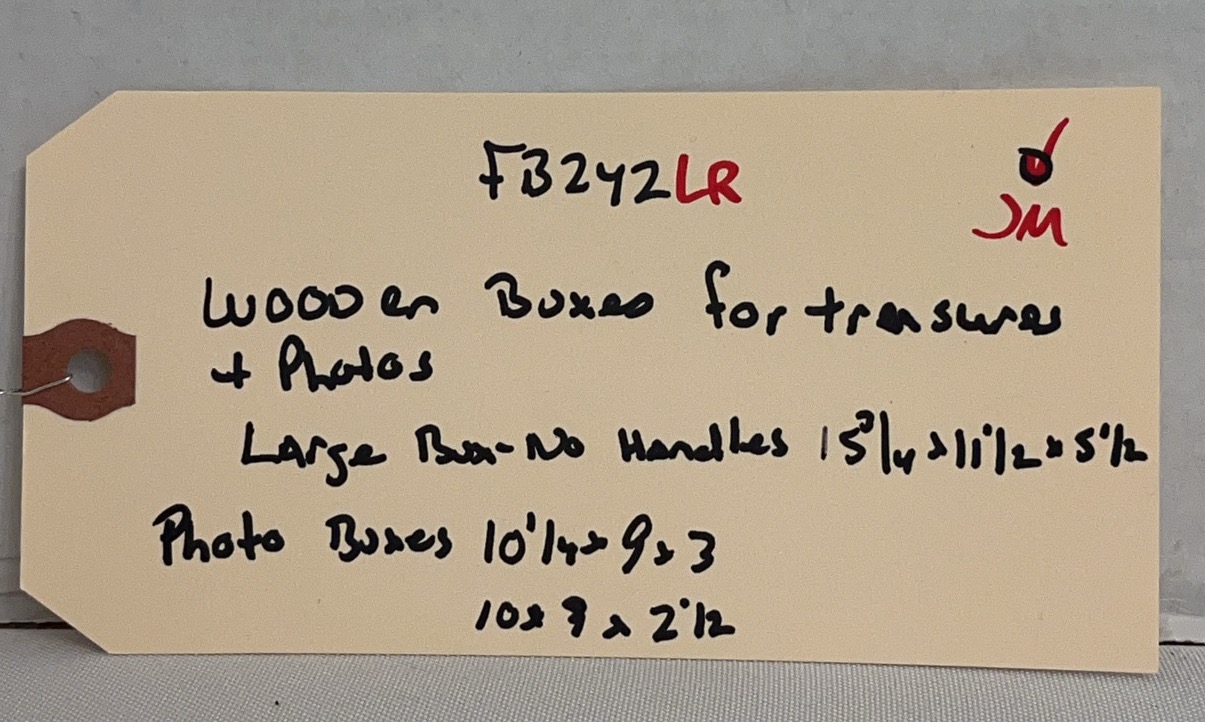 FB242LR
JM
Wooden Boxes for treasures
+ Photos
Large Box-No Handles 15 3/4 x 11 1/2 x 5 1/2
Photo Boxes 10 1/4 x 9 x 3
10 x x 2 1/2